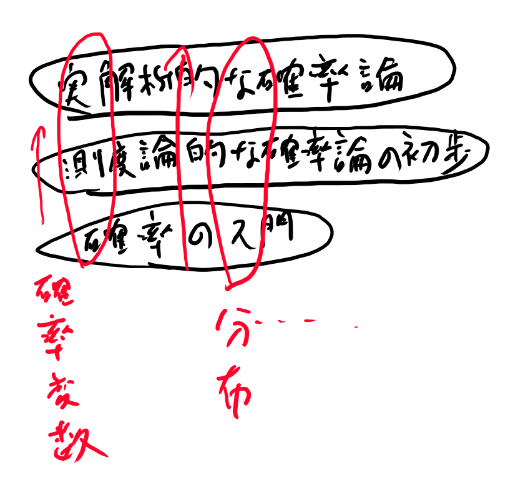 実解析的な確率論
測度論的な確率論の初歩
確率の入門
確率変数
分布.....